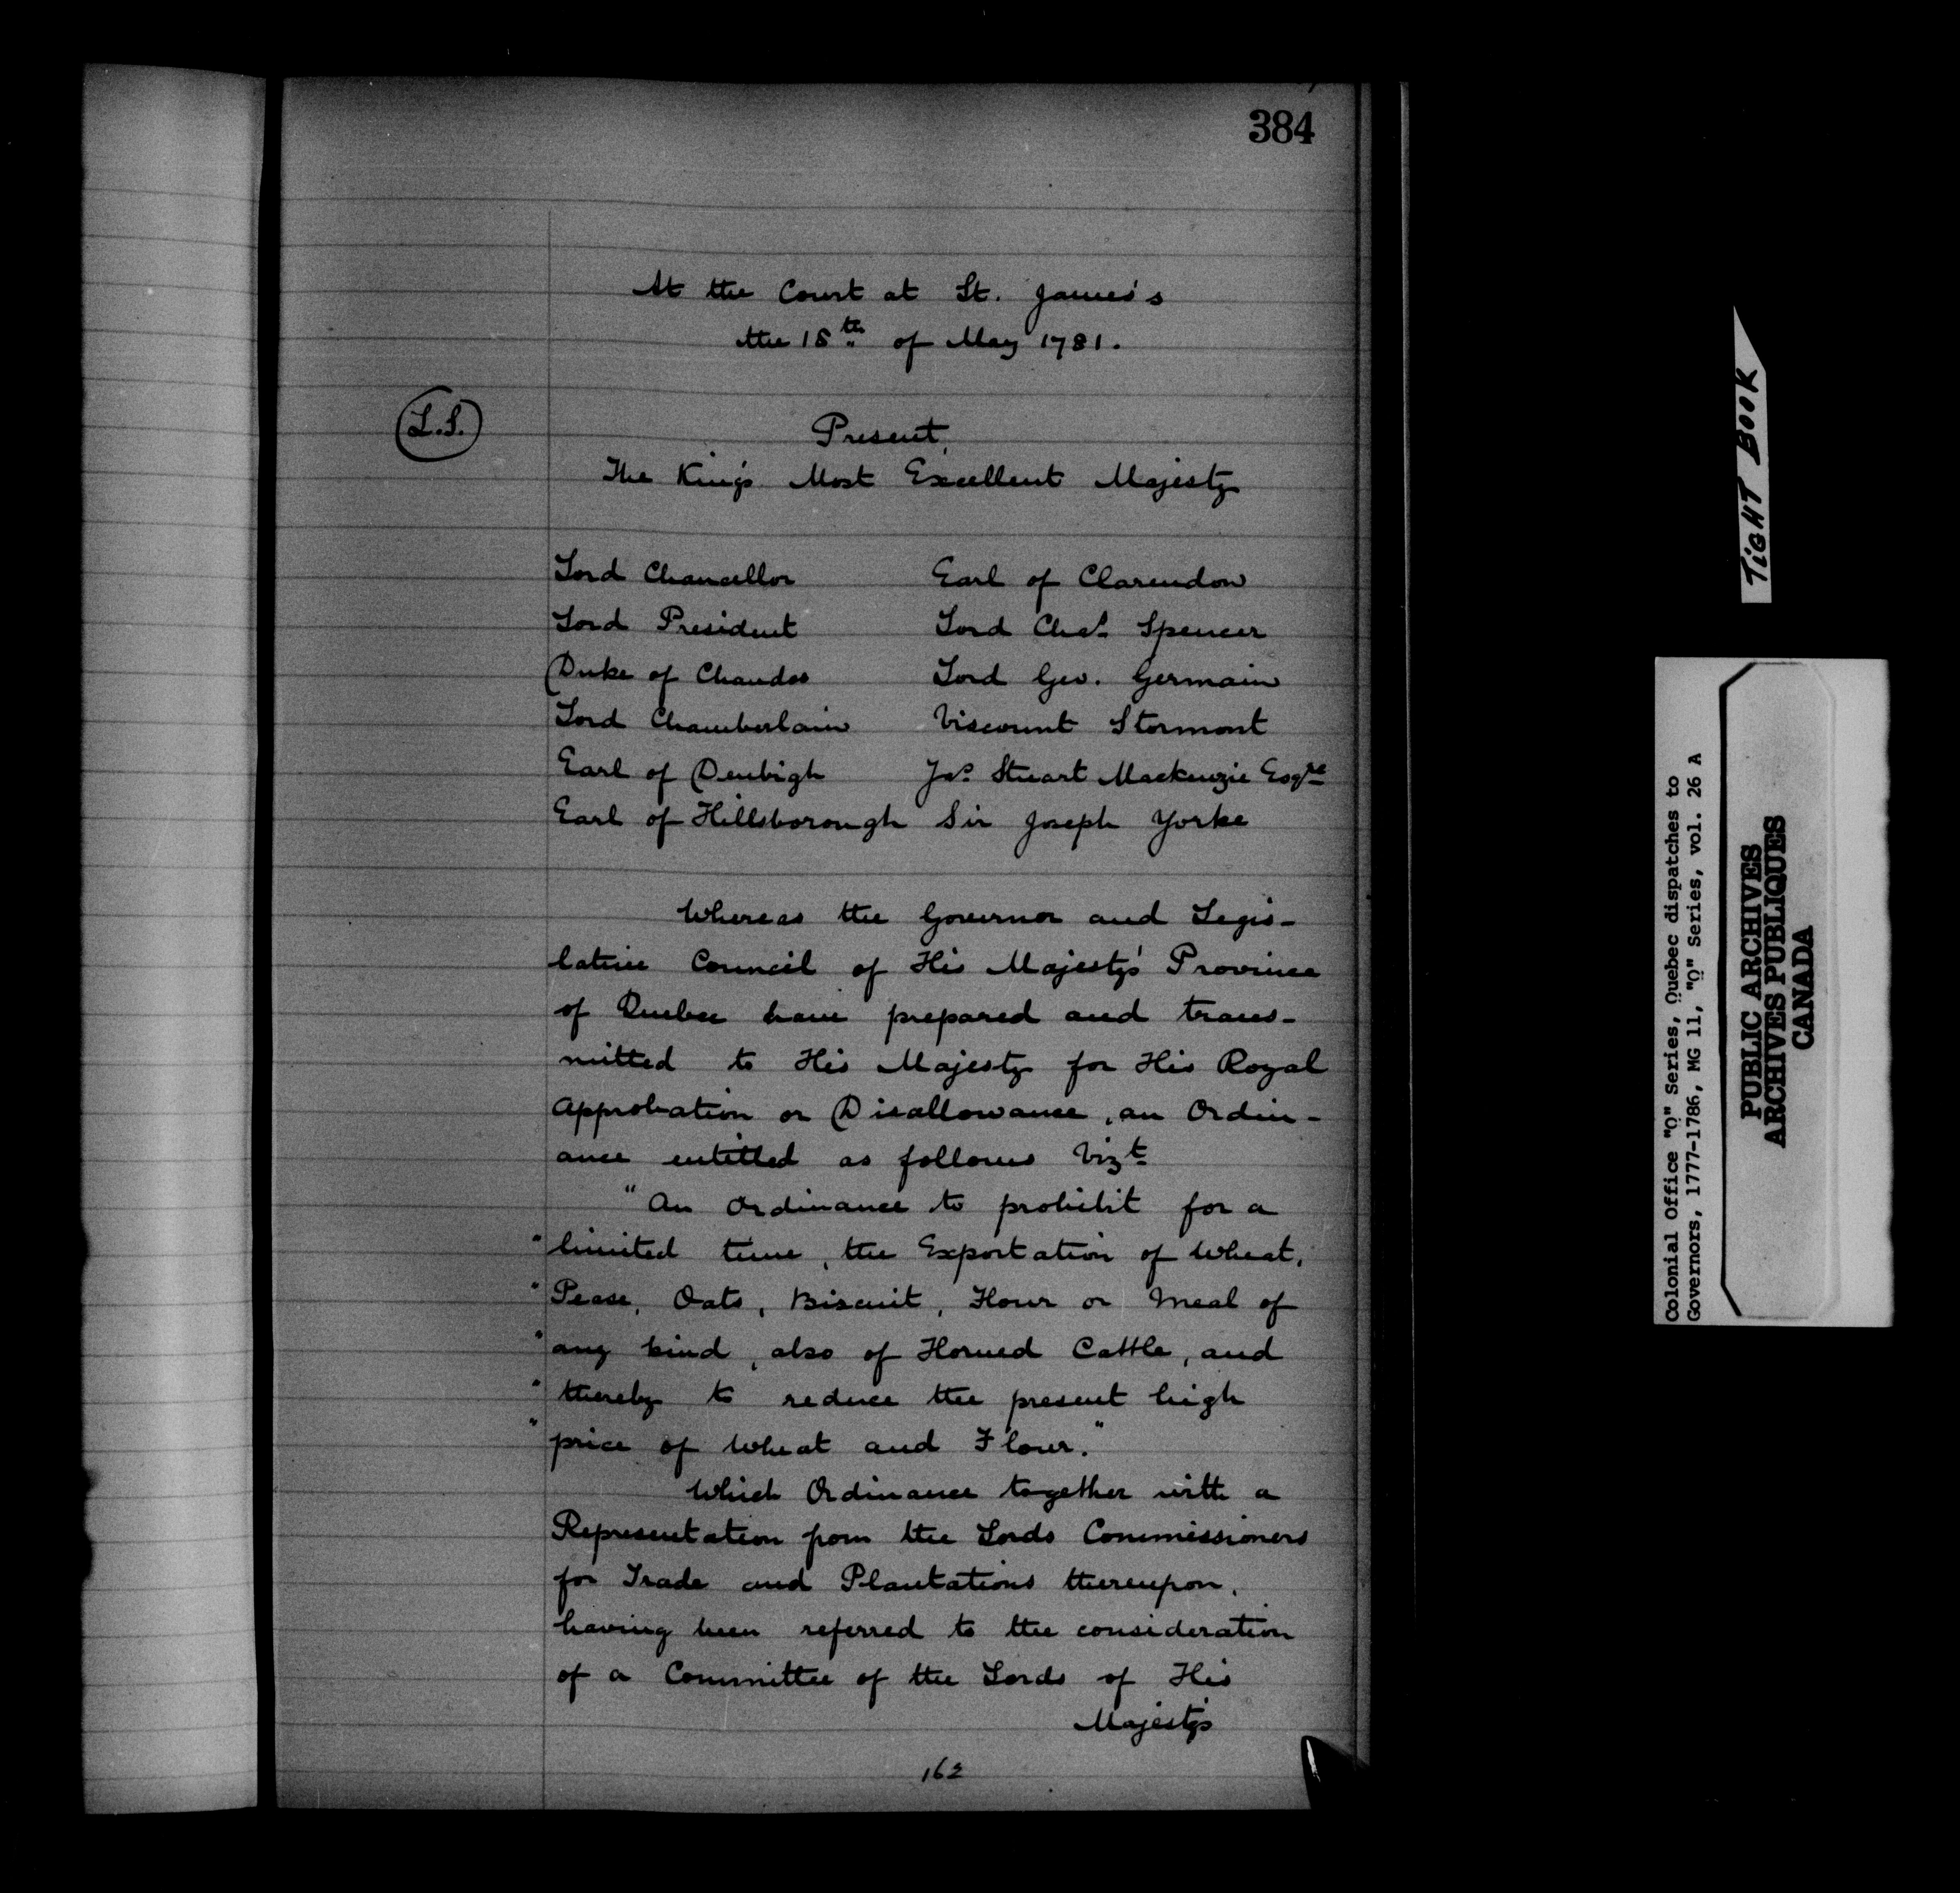 384
At the Court at St. James's
the 18th of May 1781.
(L.S.)
Present,
The King's Most Excellent Majesty
Lord Chancellor Earl of Clarendon
Lord President Lord Chas. Spencer
Duke of Chandos Lord Geo. Germain
Lord Chamberlain Viscount Stormont
Earl of Denbigh Jas. Stuart Mackenzie Esqre
Earl of Hillsborough Sir Joseph Yorke
Whereas the Governor and Legis-
lative Council of His Majesty's Province
of Quebec have prepared and trans-
mitted to His Majesty for His Royal
Approbation or Disallowance, an Ordin-
ance entitled as follows Vizt
"An Ordinance to prohibit for a
"limited time, the Exportation of Wheat,
"Pease, Oats, Biscuit, Flour or Meal of
"any kind, also of Horned Cattle, and
"thereby to reduce the present high
"price of Wheat and Flour."
Which Ordinance together with a
Representation from the Lords Commissioners
for Trade and Plantations thereupon,
having been referred to the consideration
of a Committee of the Lords of His
Majesty's
162
TiGHT BOOK
Colonial Office "Q" Series, Quebec dispatches to
Governors, 1777-1786, MG 11, "Q" Series, vol. 26 A
PUBLIC ARCHIVES
ARCHIVES PUBLIQUES
CANADA